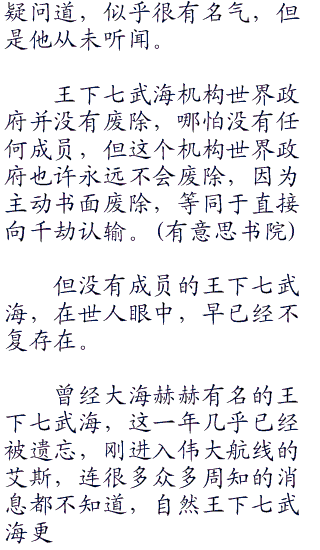 疑问道，似乎很有名气，但
是他从未听闻。
王下七武海机构世界政
府并没有废除，哪怕没有任
何成员，但这个机构世界政
府也许永远不会废除，因为
主动书面废除，等同于直接
向千劫认输。(有意思书院)
但没有成员的王下七武
海，在世人眼中，早已经不
复存在。
曾经大海赫赫有名的王
下七武海，这一年几乎已经
被遗忘，刚进入伟大航线的
艾斯，连很多众多周知的消
息都不知道，自然王下七武
海更